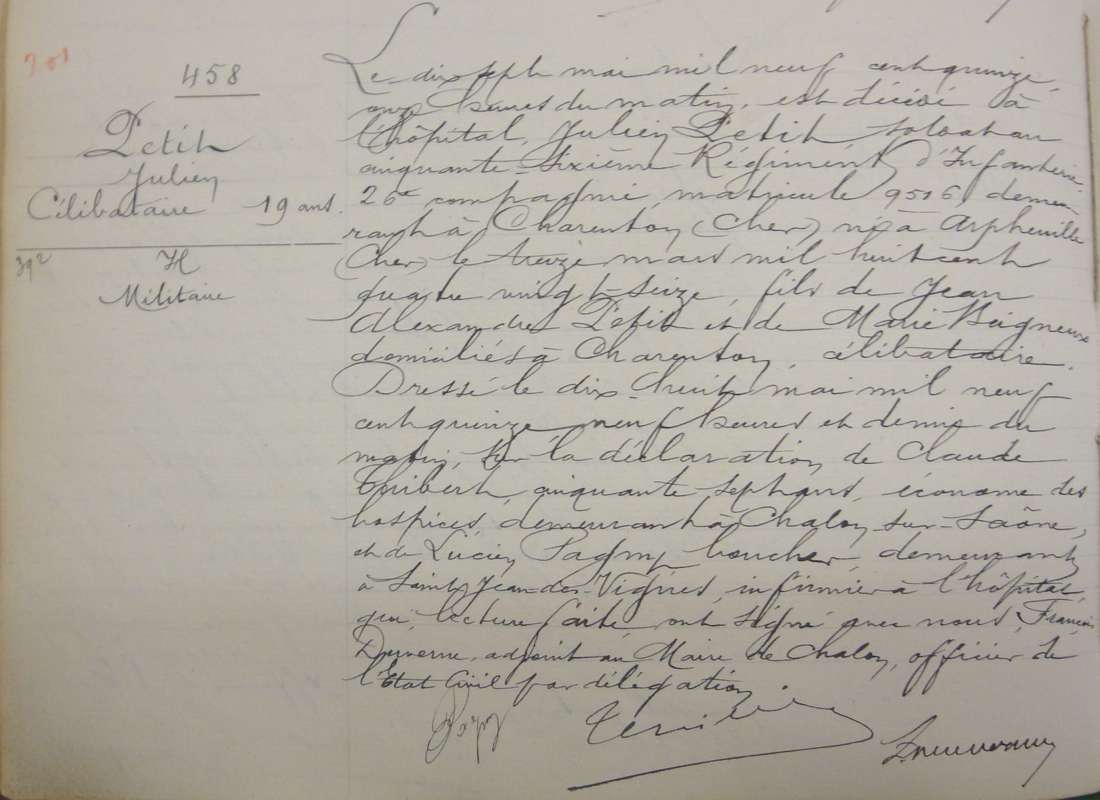 301
458
Petit
Julien
Célibataire 19 ans.
392
H
Militaire
Le dix sept mai mil neuf cent quinze
onze heures du matin, est décédé à
l'hôpital, Julien Petit soldat au
cinquante-sixième Régiment d'Infanterie.
26e compagnie, matricule 9516, demeu-
rant à Charenton (Cher) né à Arpheuille
(Cher) le treize mars mil huit cent
quatre vingt-seize, fils de Jean
Alexandre Petit et de Marie
domiciliés à Charenton, célibataire.
Dressé le dix-huit mai mil neuf
cent quinze neuf heures et demie du
matin, sur la déclaration de Claude
Thibert, cinquante sept ans, économe des
hospices, demeurant à Chalon-sur-Saône,
et de Lucien Pagny boucher, demeurant
à Saint Jean-des-Vignes, infirmier à l'hôpital,
qui, lecture faite, ont signé avec nous, François
Duverne, adjoint au Maire de Chalon, officier de
l'Etat Civil par délégation